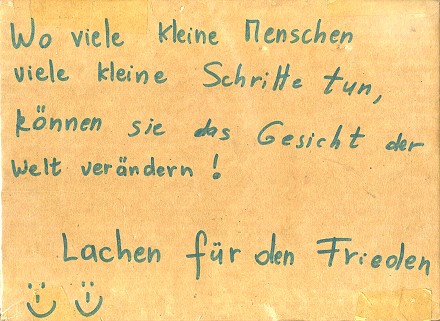 Wo viele kleine Menschen
viele kleine Schritte tun,
können sie das Gesicht der
Welt verändern!
Lachen für den Frieden